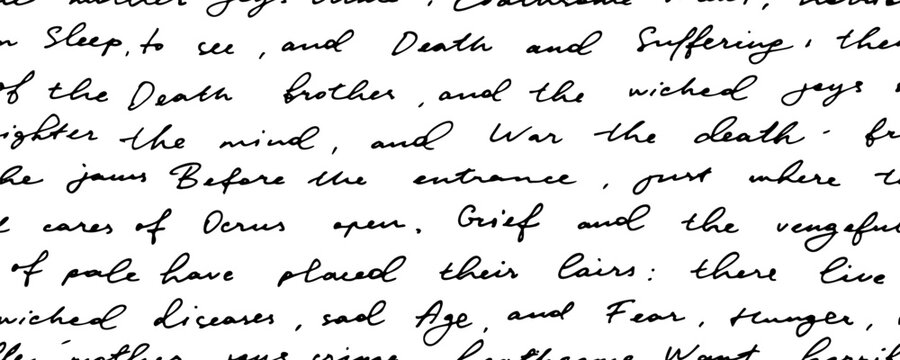 mother joys
Sleep, to see, and Death and Suffering,
of the Death brother, and the wicked joys
the mind, and War the death -
the jaws Before the entrance, just where
cares of Ocrus open. Grief and the
of pale have placed their lairs: there live
wicked diseases, sad Age, and Fear, Hunger,
mother crime, loathsome Want,